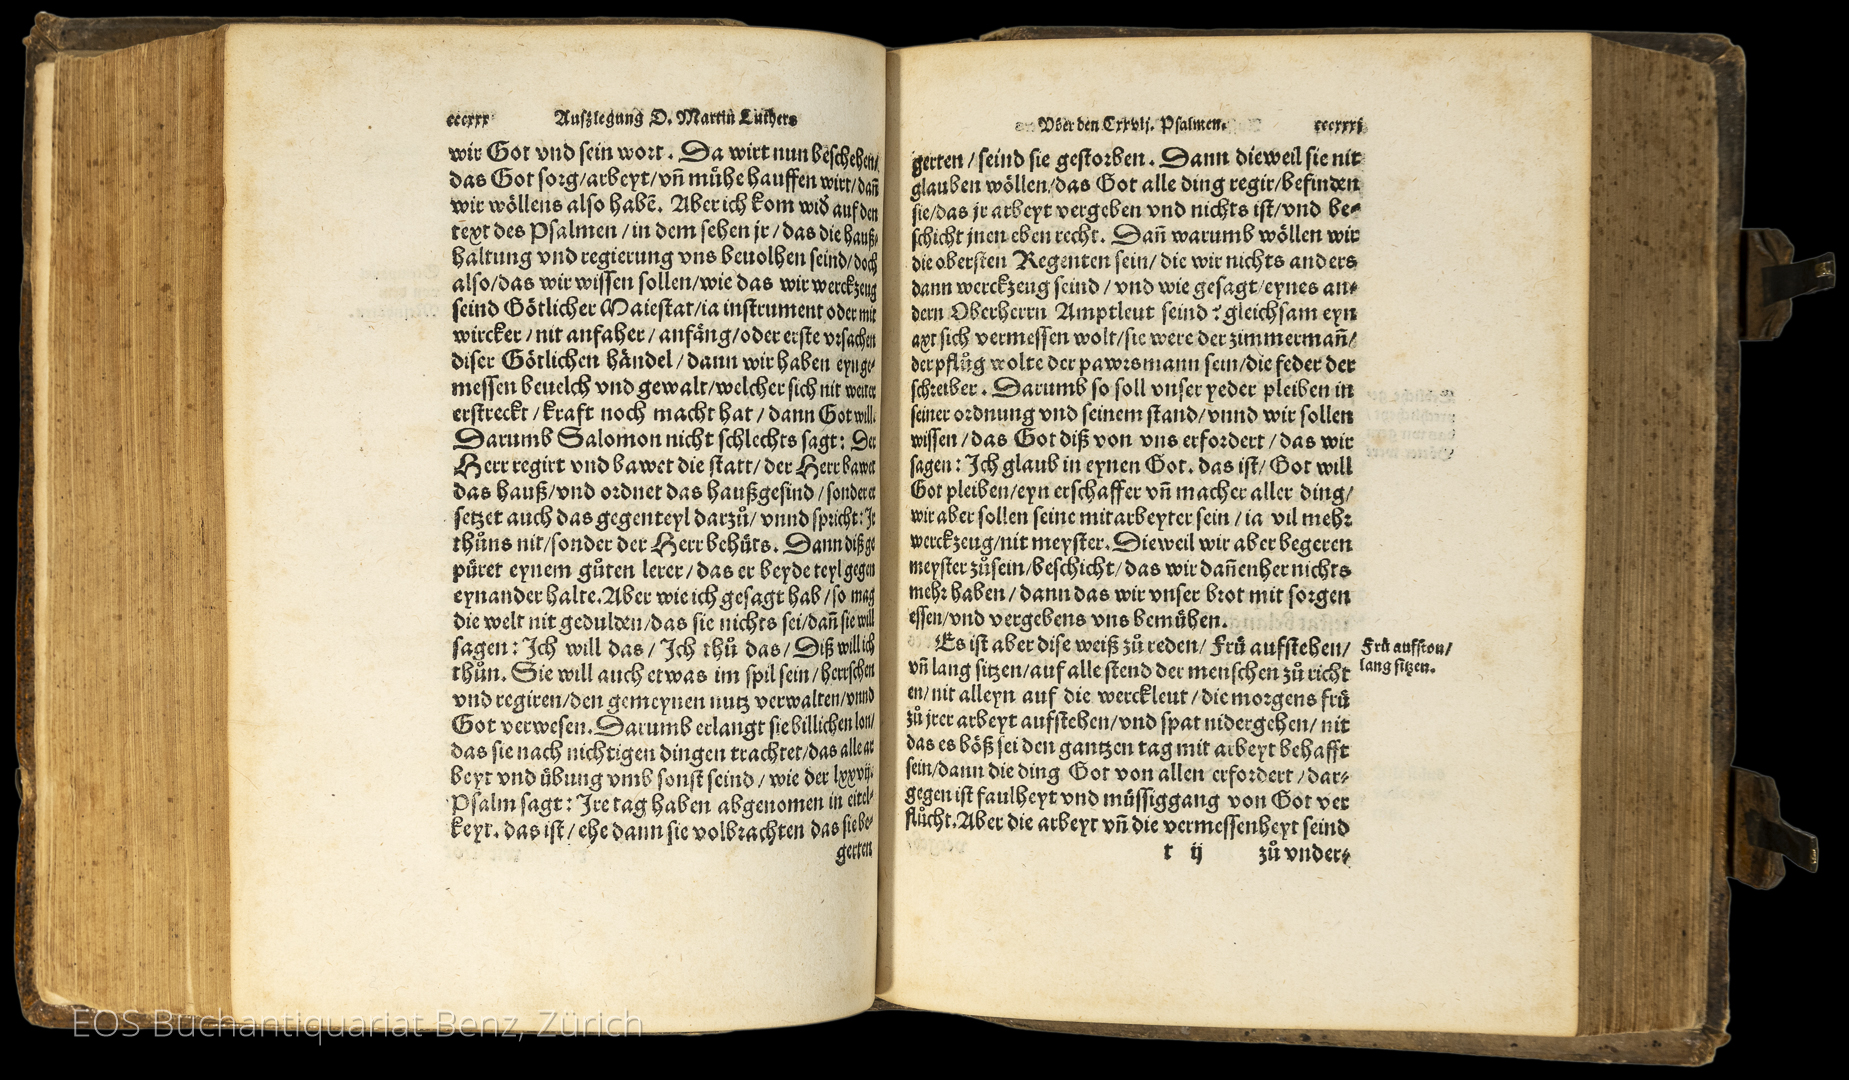 ccccxxx Auſzlegung D. Martin Luthers
wir Got vnd ſein wort. Da wirt nun beſchehen/
das Got ſorg/arbeyt/vñ můhe hauffen wirt/dañ
wir wöllens alſo habẽ. Aber ich kom wid auf den
text des Pſalmen/in dem ſehen jr/das die hauß⸗
haltung vnd regierung vns beuolhen ſeind/doch
alſo/das wir wiſſen ſollen/wie das wir werckzeug
ſeind Götlicher Maieſtat/ia inſtrument oder mit
wircker/nit anfaher/anfäng/oder erſte vrſachen
diſer Götlichen händel/dann wir haben eynge⸗
meſſen beuelch vnd gewalt/welcher ſich nit weiter
erſtreckt/krafft noch macht hat/dann Got will.
Darumb Salomon nicht ſchlechts ſagt: Der
Herr regirt vnd bawet die ſtatt/der Herr bawet
das hauß/vnd ordnet das haußgeſind/ſonder er
ſetzet auch das gegenteyl darzů/vnnd ſpricht: Jr
thůns nit/ſonder der Herr behüts. Dann diß ge
püret eynem gůten lerer/das er beyde teyl gegen
eynander halte. Aber wie ich geſagt hab/ſo mag
die welt nit gedulden/das ſie nichts ſei/dañ ſie will
ſagen: Jch will das/Jch thů das/Diß will ich
thůn. Sie will auch etwas im ſpil ſein/herrſchen
vnd regiren/den gemeynen nutz verwalten/vnnd
Got verweſen. Darumb erlangt ſie billichen lon/
das ſie nach nichtigen dingen trachtet/das alle ar
beyt vnd übung vmb ſonſt ſeind/wie der lxxvij.
Pſalm ſagt: Jre tag haben abgenomen in eitel⸗
keyt. das iſt/ehe dann ſie volbrachten das ſie be⸗
gerten
Vber den Cxxvij. Pſalmen. ccccxxxj
gerten/ſeind ſie geſtorben. Dann dieweil ſie nit
glauben wöllen/das Got alle ding regir/befinden
ſie/das jr arbeyt vergeben vnd nichts iſt/vnd be⸗
ſchicht jnen eben recht. Dañ warumb wöllen wir
die oberſten Regenten ſein/die wir nichts anders
dann werckzeug ſeind/vnd wie geſagt/eynes an⸗
dern Oberherrn Amptleut ſeind? gleichſam eyn
axt ſich vermeſſen wolt/ſie were der zimmermañ/
der pflůg wolte der pawrsmann ſein/die feder der
ſchreiber. Darumb ſo ſoll vnſer yeder pleiben in
ſeiner ordnung vnd ſeinem ſtand/vnnd wir ſollen
wiſſen/das Got diß von vns erfordert/das wir
ſagen: Jch glaub in eynen Got. das iſt/Got will
Got pleiben/eyn erſchaffer vñ macher aller ding/
wir aber ſollen ſeine mitarbeyter ſein/ia vil mehr
werckzeug/nit meyſter. Dieweil wir aber begeren
meyſter zůſein/beſchicht/das wir dañenher nichts
mehr haben/dann das wir vnſer brot mit ſorgen
eſſen/vnd vergebens vns bemühen.
Es iſt aber diſe weiß zů reden/Frü aufſtehen/
vñ lang ſitzen/auf alle ſtend der menſchen zů richt
en/nit alleyn auf die werckleut/die morgens frü
zů jrer arbeyt aufſtehen/vnd ſpat nidergehen/nit
das es böß ſei den gantzen tag mit arbeyt behafft
ſein/dann die ding Got von allen erfordert/dar⸗
gegen iſt faulheyt vnd müſſiggang von Got ver
flůcht. Aber die arbeyt vñ die vermeſſenheyt ſeind
t ij zů vnder⸗
Frü aufſton/
lang ſitzen.
EOS Buchantiquariat Benz, Zürich